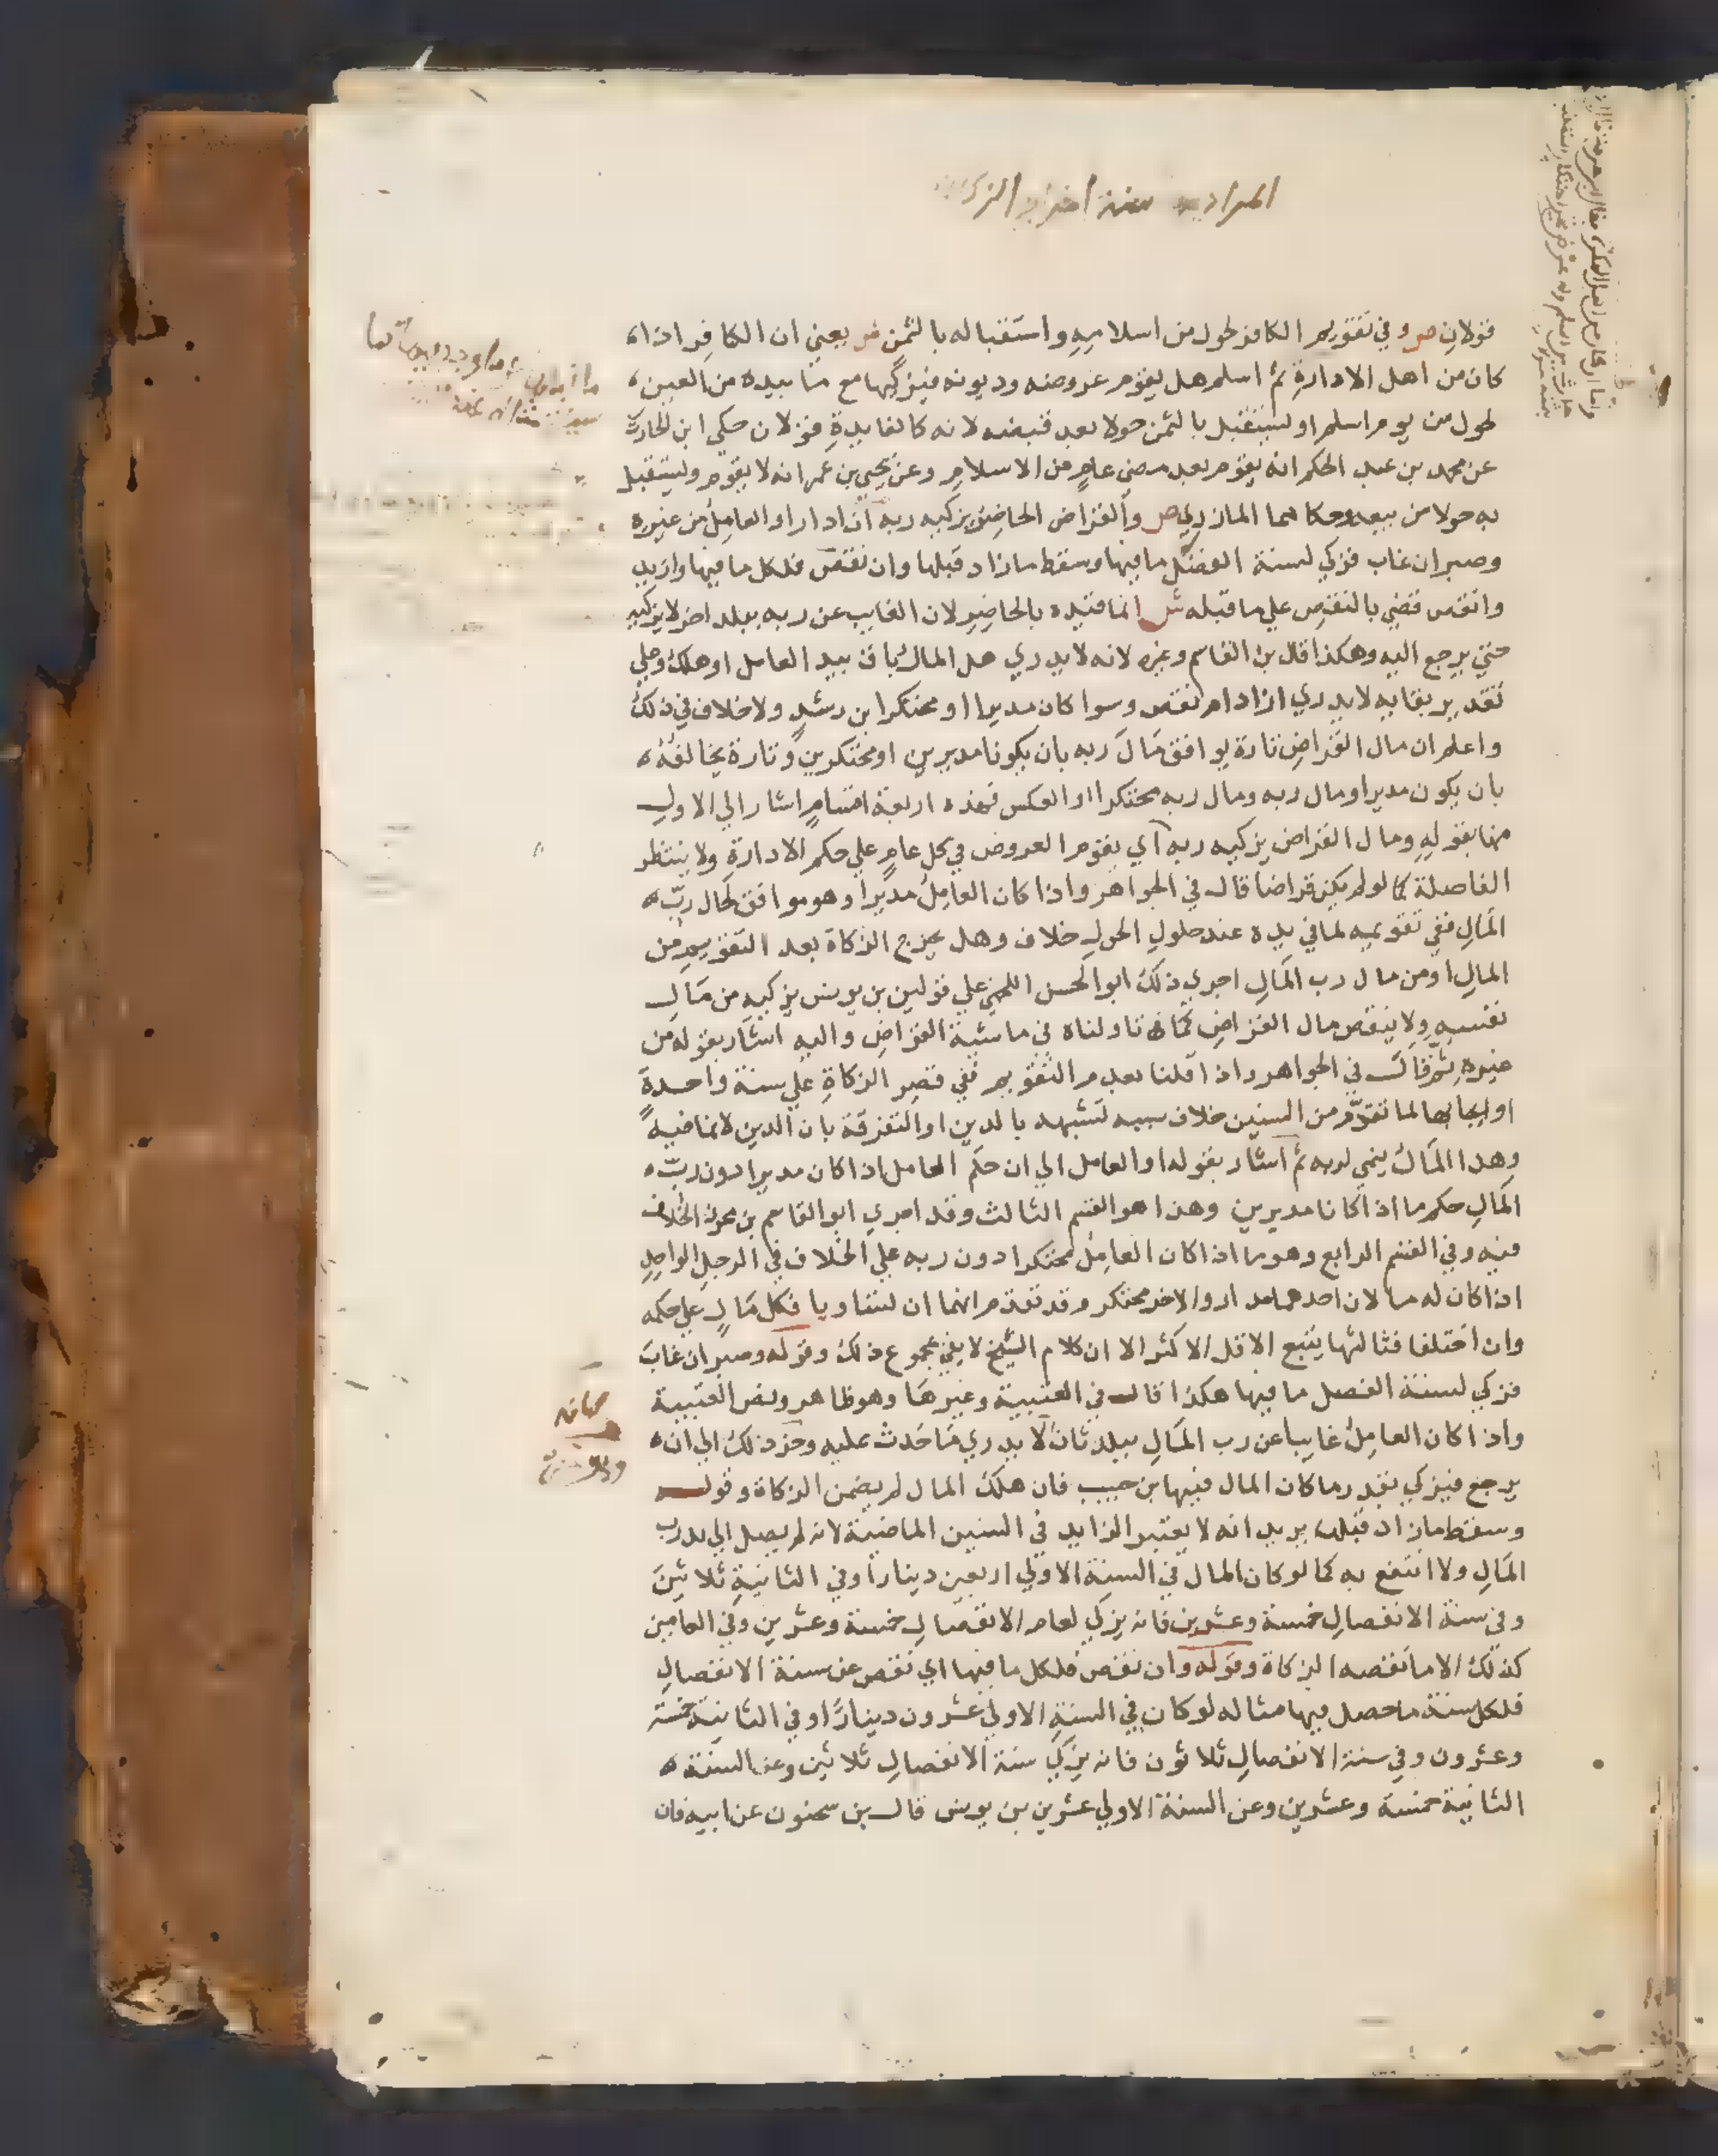 قولان ص وفي تقويم الكافر لحول من اسلامه واستقباله بالثمن ش يعني ان الكافر اذا
كان من اهل الادارة ثم اسلم هل يقوم عروضه وديونه فيزكيها مع ما بيده من العين
لحول من يوم اسلم او ليستقبل بالثمن حولا بعد قبضه لانه كالفايدة قولان حكي ابن الحارث
عن محمد بن عبد الحكم انه يقوم بعد مضي عام من الاسلام وعن يحيي بن عمر انه لا يقوم وليستقبل
به حولا من بيعه وحكاهما المازري ص والقراض الحاضر يزكيه ربه ان ادارا او العامل من غيره
وصبر ان غاب فزكي لسنة الفصل ما فيها وسقط ما زاد قبلها وان نقص فلكل ما فيها وازيد
وانقص قضي بالنقص علي ما قبله ش انما قيده بالحاضر لان الغايب عن ربه ببلد اخر لا يزكيه
حتي يرجع اليه وهكذا قال بن القاسم وغيره لانه لا يدري هل المال باق بيد العامل او هلك وعلي
تقدير بقايه لا يدري ازاد ام نقص وسوا كان مديرا او محتكرا ابن رشد ولا خلاف في ذلك
واعلم ان مال القراض تارة يوافق مال ربه بان يكونا مديرين او محتكرين وتارة يخالفه
بان يكون مديرا ومال ربه ومال ربه محتكرا او العكس فهذه اربعة اقسام اشار الي الاول
منها بقوله ومال القراض يزكيه ربه اي يقوم العروض في كل عام علي حكم الادارة ولا ينتظر
الفاصلة كما لو لم يكن قراضا قال في الجواهر واذا كان العامل مديرا وهو موافق لحال رب
المال ففي تقويمه لما في يده عند حلول الحول خلاف وهل يخرج الزكاة بعد التقويم من
المال او من مال رب المال اجري ذلك ابو الحسن اللخمي علي قولين بن يونس يزكيه من مال
نفسه ولا ينقص مال القراض كما تاولناه في ماشية القراض واليه اشار بقوله من
غيره ثم قال في الجواهر واذا قلنا بعدم التقويم ففي قصر الزكاة علي سنة واحدة
او ايجابها لما تقدم من السنين خلاف سببه تشبيهه بالدين او التفرقة بان الدين لا نما فيه
وهذا المال ينمي لربه ثم اشار بقوله او العامل الي ان حكم العامل اذا كان مديرا دون رب
المال حكم ما اذا كانا مديرين وهذا هو القسم الثالث وقد اجري ابو القاسم بن محرز الخلاف
فيه وفي القسم الرابع وهو ما اذا كان العامل محتكرا دون ربه علي الخلاف في الرجل الواحد
اذا كان له مالان احدهما مدار والاخر محتكر وقد تقدم انهما ان تساويا فكل مال علي حكمه
وان اختلفا فثالثها يتبع الاقل الاكثر الا ان كلام الشيخ لا يفي بمجموع ذلك وقوله وصبر ان غاب
فزكي لسنة الفصل ما فيها هكذا قال في العتبية وغيرها وهو ظاهر ونص العتبية
واذا كان العامل غايبا عن رب المال ببلد ثان لا يدري ما حدث عليه وخر ذلك الي ان
يرجع فيزكي بقدر ما كان المال فيها بن حبيب فان هلك المال لم يضمن الزكاة وقوله
وسقط ما زاد قبلها يريد انه لا يعتبر الزايد في السنين الماضية لانه لم يصل الي يد رب
المال ولا انتفع به كما لو كان المال في السنة الاولي اربعين دينارا وفي الثانية ثلاثين
وفي سنة الانفصال خمسة وعشرين فانه يزكي لعام الانفصال خمسة وعشرين وفي العامين
كذلك الا ما نقصه الزكاة وقوله وان نقص فلكل ما فيها اي نقص عن سنة الانفصال
فلكل سنة ما حصل فيها مثاله لو كان في السنة الاولي عشرون دينارا وفي الثانية خمسة
وعشرون وفي سنة الانفصال ثلاثون فانه يزكي سنة الانفصال ثلاثين وعن السنة
الثانية خمسة وعشرين وعن السنة الاولي عشرين بن يونس قال بن سحنون عن ابيه فان